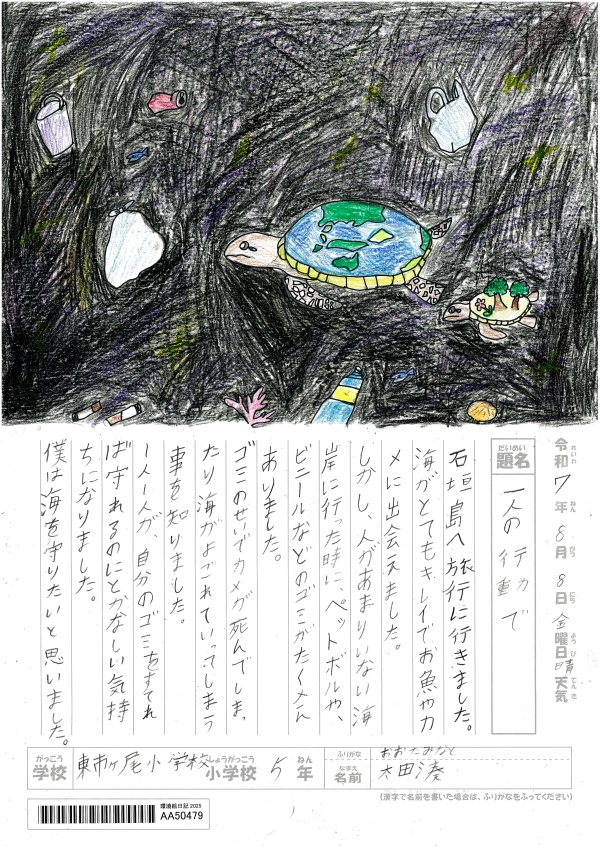 令和7年8月8日金曜日 晴 天気
れいわ ねん がつ にち ようび てんき
だいめい
題名
一人の行動で
石垣島へ旅行に行きました。
海がとてもキレイでお魚やカ
メに出会えました。
しかし、人があまりいない海
岸に行った時に、ペットボルや、
ビニールなどのゴミがたくさん
ありました。
ゴミのせいでカメが死んでしまっ
たり海がよごれていってしまう
事を知りました。
一人一人が、自分のゴミをすてれ
ば守れるのにとかなしい気持
ちになりました。
僕は海を守りたいと思いました。
がっこう
学校
東市ヶ尾小学校
しょうがっこう
小学校
5
ねん
年
ふりがな
おおたみなと
なまえ
名前
太田湊
(漢字で名前を書いた場合は、ふりがなをふってください)
環境絵日記 2025
AA50479